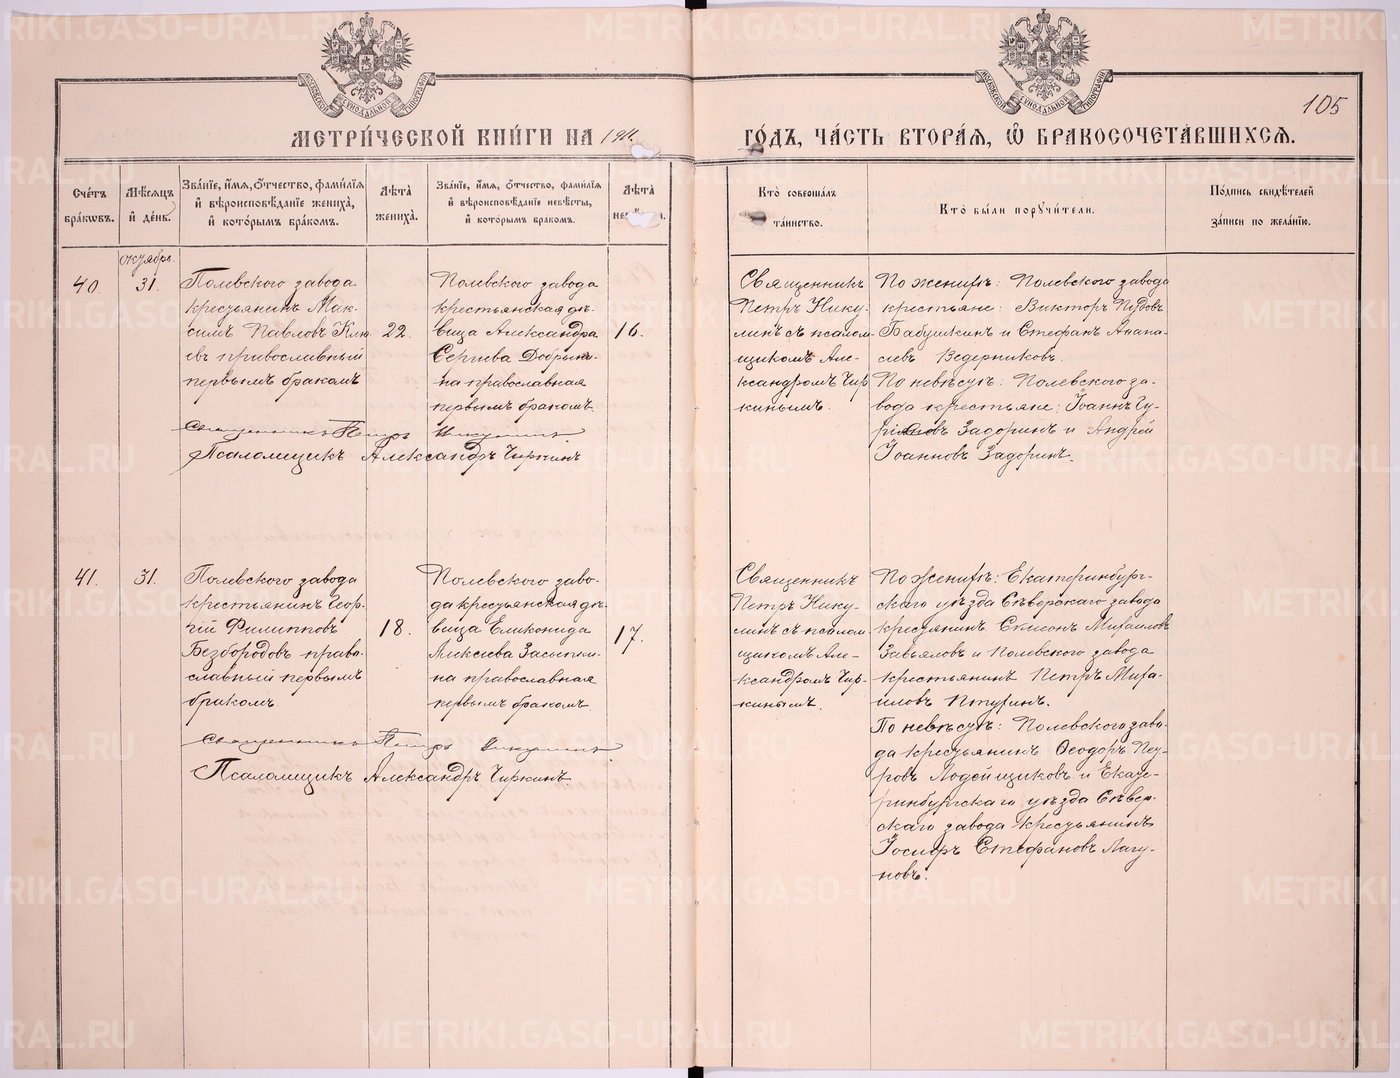 105
МЕТРИ́ЧЕСКОЙ КНИ́ГИ НА
ГО́ДЪ, ЧА́СТЬ ВТОРА́Я, Ѡ҆ БРАКОСОЧЕТА́ВШИХСЯ.
Сче́тъ бра́ковъ.
Мѣ́сяцъ и҆ де́нь.
Зва́нїе, и҆́мя, ѻ҆́тчество, фамѝлїя и҆ вѣроисповѣ́данїе жениха̀, и҆ кото́рымъ бра́комъ.
Лѣ́та жениха̀.
Зва́нїе, и҆́мя, ѻ҆́тчество, фамѝлїя и҆ вѣроисповѣ́данїе невѣ́сты, и҆ кото́рымъ бракомъ.
Лѣ́та
Кто̀ совершалъ та́инство.
Кто̀ бы́ли порꙋчи́тели.
По́дпись свидѣ́телей за́писи по жела́нїю.
октябрь.
40.
31.
Полевского завода
крестьянинъ Мак-
симъ Павловъ Клю
евъ православный
первымъ бракомъ
22.
Полевского завода
крестьянская дѣ-
вица Александра
Сергіева Добрыни-
на православная
первымъ бракомъ
16.
Священникъ
Петръ Нику-
линъ съ псалом
щикомъ Але-
ксандромъ Чир
кинымъ.
По женихѣ: Полевского завода
крестьяне: Викторъ Пудовъ
Бабушкинъ и Стефанъ Анана-
сіевъ Ведерниковъ.
По невѣстѣ: Полевского за-
вода крестьяне: Іоаннъ Гу-
ріановъ Задоринъ и Андрей
Іоанновъ Задоринъ.
Священникъ Петръ Никулинъ
Псаломщикъ Александръ Чиркинъ
41.
31.
Полевского завода
крестьянинъ Геор-
гій Филипповъ
Безбородовъ право-
славный первымъ
бракомъ
18.
Полевского заво-
да крестьянская дѣ-
вица Еликонида
Алексіева Засыпки-
на православная
первымъ бракомъ
17.
Священникъ
Петръ Нику-
линъ съ псалом
щикомъ Але-
ксандромъ Чир-
кинымъ.
По женихѣ: Екатеринбург-
скаго уѣзда Сѣверскаго завода
крестьянинъ Симеонъ Михаиловъ
Завьяловъ и Полевского завода
крестьянинъ Петръ Миха-
иловъ Птухинъ.
По невѣстѣ: Полевского заво-
да крестьянинъ Ѳеодоръ Пет-
ровъ Лодейщиковъ и Екате-
ринбургскаго уѣзда Сѣвер-
скаго завода крестьянинъ
Іосифъ Стефановъ Лагу-
новъ.
Священникъ Петръ Никулинъ
Псаломщикъ Александръ Чиркинъ
METRIKI.GASO-URAL.RU